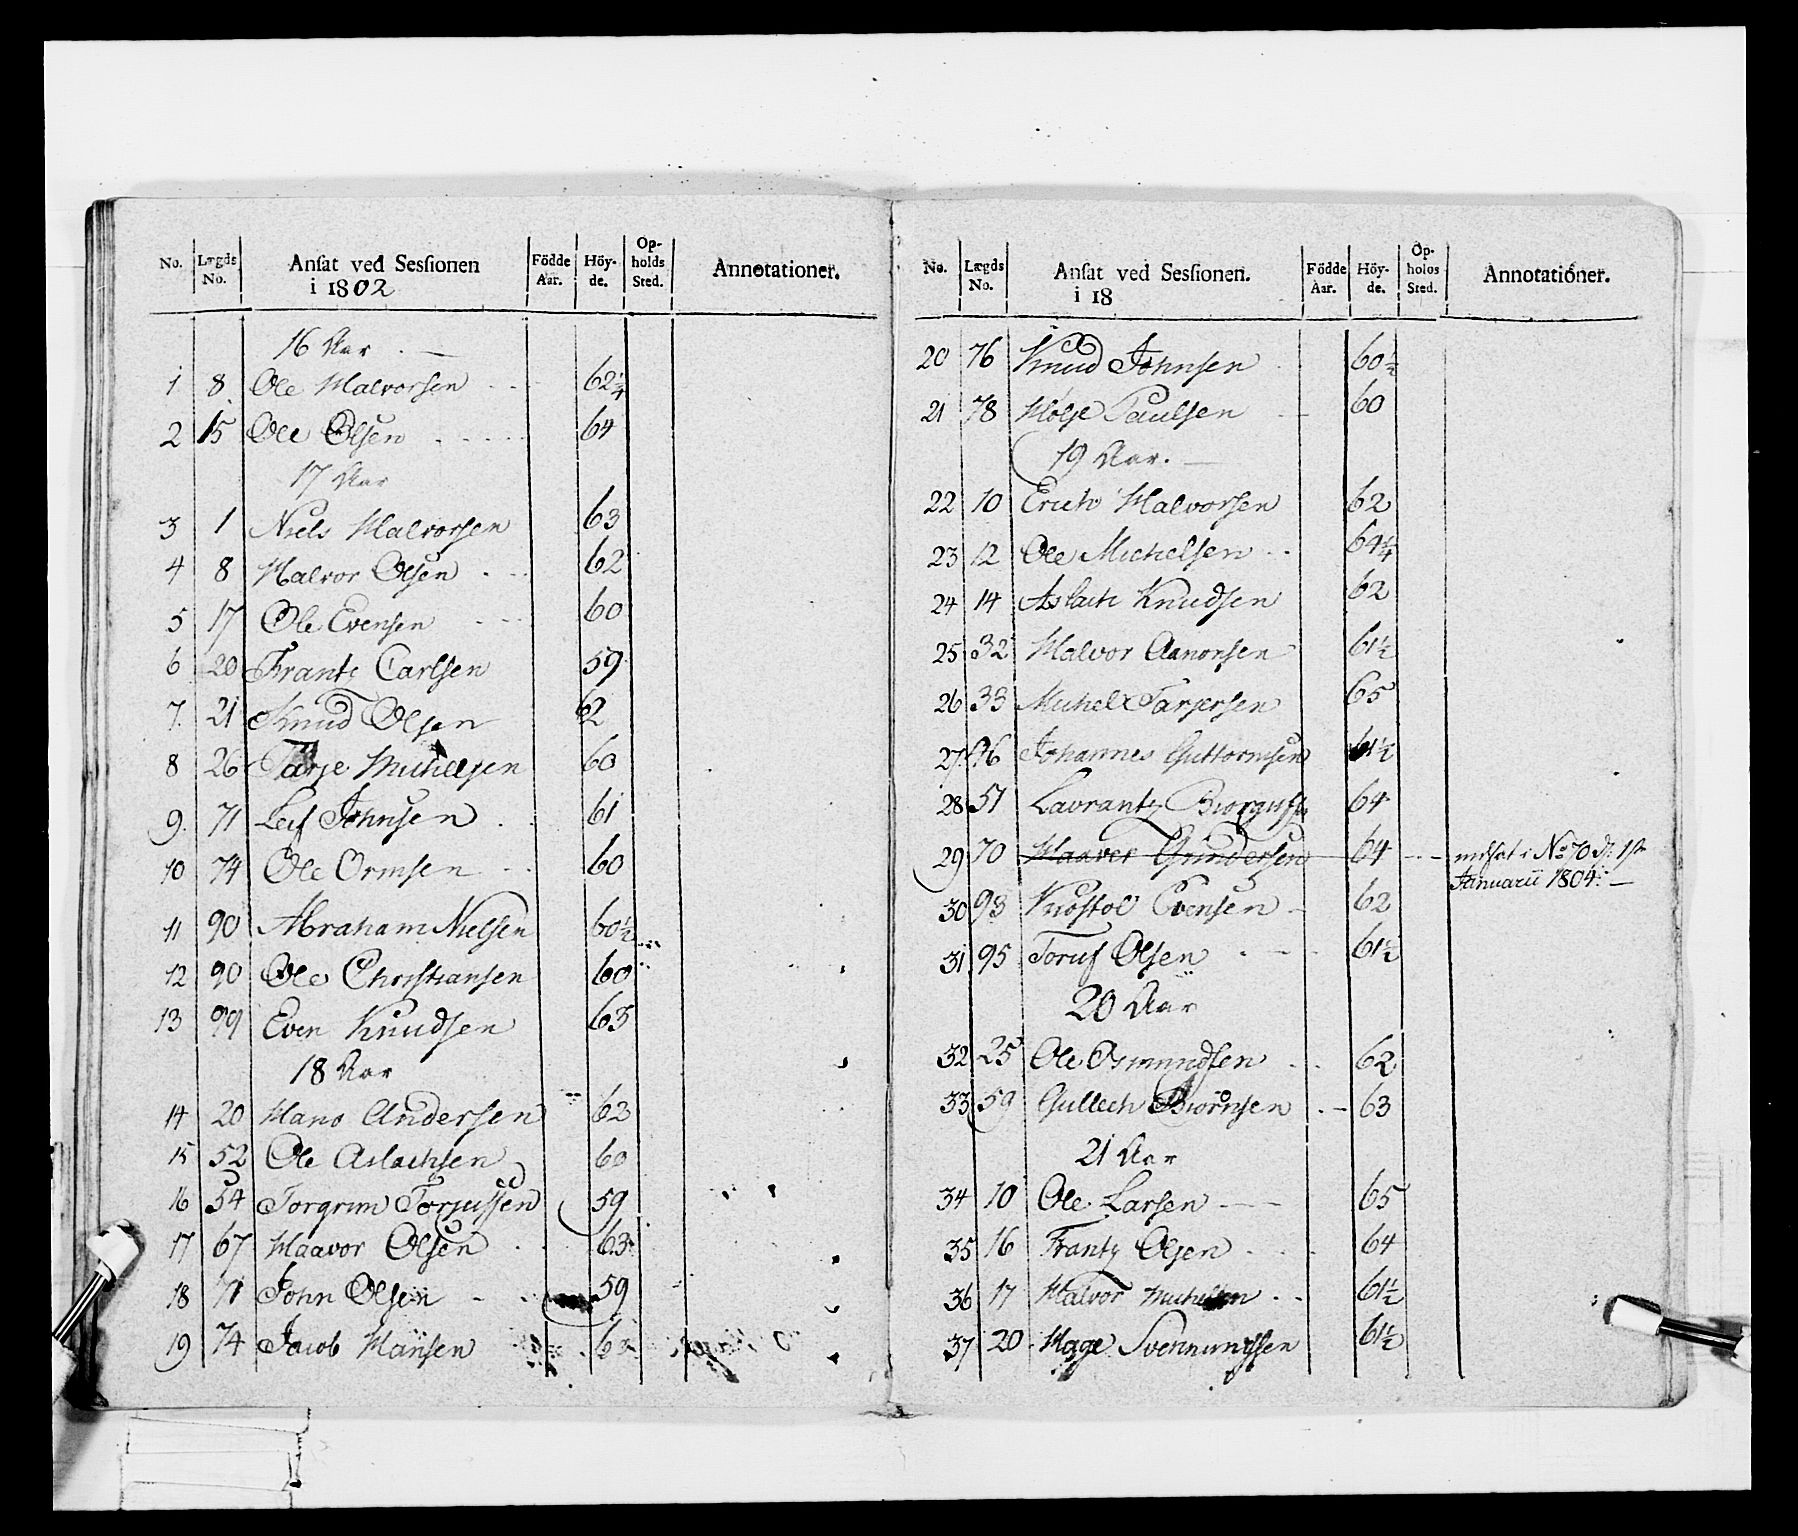 No. Lægds No. Ansat ved Sessionen i 1802 Födde Aar. Höyde. Opholds Sted. Annotationer.
16 Aar
1 8 Ole Halvorsen 62¼
2 15 Ole Olsen 64
17 Aar
3 1 Niels Halvorsen 63
4 8 Halvor Olsen 62
5 17 Ole Evensen 60
6 20 Frantz Carlsen 59
7. 21 Knud Olsen 62
8 26 Tarje Michelsen 60
9. 71 Leif Johnsen 61
10 74 Ole Ormsen 60
11 90 Abraham Nielsen 60½
12 90 Ole Christiansen 60
13 99 Even Knudsen 63
18 Aar
14 20 Hans Andersen 62
15 52 Ole Aslachsen 60
16 54 Torgrim Torjussen 59
17 67 Haavor Olsen 63
18 71 John Olsen 59
19 74 Jacob Hansen
No. Lægds No. Ansat ved Sessionen. i 18 Födde Aar. Höyde. Opholds Sted. Annotationer.
20 76 Knud Johnsen 60½
21 78 Hølje Paulsen 60
19 Aar.
22 10 Erich Halvorsen 62
23 12 Ole Michelsen 64¼
24 14 Aslach Knudsen 62
25 32 Halvor Aanonsen 61½
26 33 Michel Tarjersen 65
27 46 Johannes Guttormsen 61½
28 51 Lavrantz 64
29 70 Haaver Gundersen 64 indsat i No 70 d: 1ste
Januarii 1804.
30 93 Knostol Evensen 62
31 95 Toruf Olsen 61½
20 Aar
32 25 Ole Osmundsen 62
33 59 Gullech Biörnsen 63
21 Aar
34 10 Ole Larsen 65
35 16 Frantz Olsen 64
36 17 Halvor Michelsen 61½
37 20 Hage Svennungsen 61½